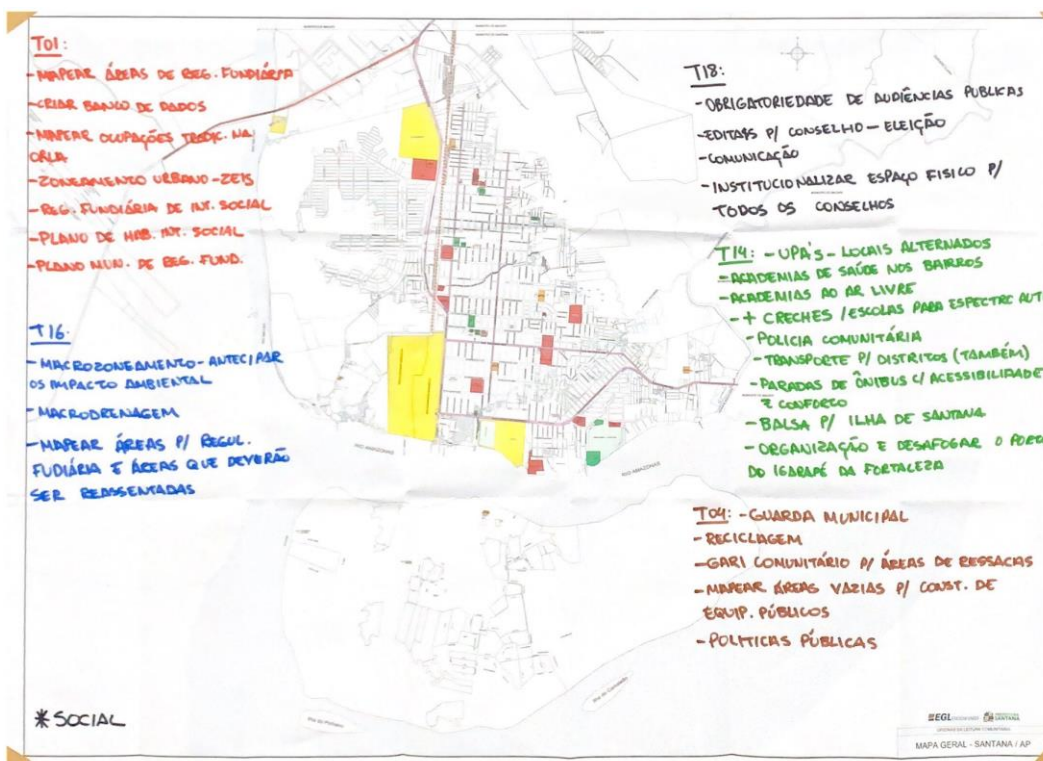 T01:
- MAPEAR ÁREAS DE REG. FUNDIÁRIA
- CRIAR BANCO DE DADOS
- MAPEAR OCUPAÇÕES TRADIC. NA
ORLA
- ZONEAMENTO URBANO - ZEIS
- REG. FUNDIÁRIA DE INT. SOCIAL
- PLANO DE HAB. INT. SOCIAL
- PLANO MUN. DE REG. FUND.
T16:
- MACROZONEAMENTO - ANTECIPAR
OS IMPACTO AMBIENTAL
- MACRODRENAGEM
- MAPEAR ÁREAS P/ REGUL.
FUDIÁRIA E ÁREAS QUE DEVERÃO
SER REASSENTADAS
* SOCIAL
T18:
- OBRIGATORIEDADE DE AUDIÊNCIAS PUBLICAS
- EDITAIS P/ CONSELHO - ELEIÇÃO
- COMUNICAÇÃO
- INSTITUCIONALIZAR ESPAÇO FISICO P/
TODOS OS CONSELHOS
T14: - UPA'S - LOCAIS ALTERNADOS
- ACADEMIAS DE SAÚDE NOS BAIRROS
- ACADEMIAS AO AR LIVRE
- + CRECHES / ESCOLAS PARA ESPECTRO AUT
- POLICIA COMUNITÁRIA
- TRANSPORTE P/ DISTRITOS (TAMBÉM)
- PARADAS DE ÔNIBUS C/ ACESSIBILIDADE
E CONFORTO
- BALSA P/ ILHA DE SANTANA
- ORGANIZAÇÃO E DESAFOGAR O PORT
DO IGARAPÉ DA FORTALEZA
T04: - GUARDA MUNICIPAL
- RECICLAGEM
- GARI COMUNITÁRIO P/ ÁREAS DE RESSACAS
- MAPEAR ÁREAS VAZIAS P/ CONST. DE
EQUIP. PÚBLICOS
- POLITICAS PÚBLICAS
RIO AMAZONAS
RIO AMAZONAS
EGL
PREFEITURA
SANTANA
MAPA GERAL - SANTANA / AP